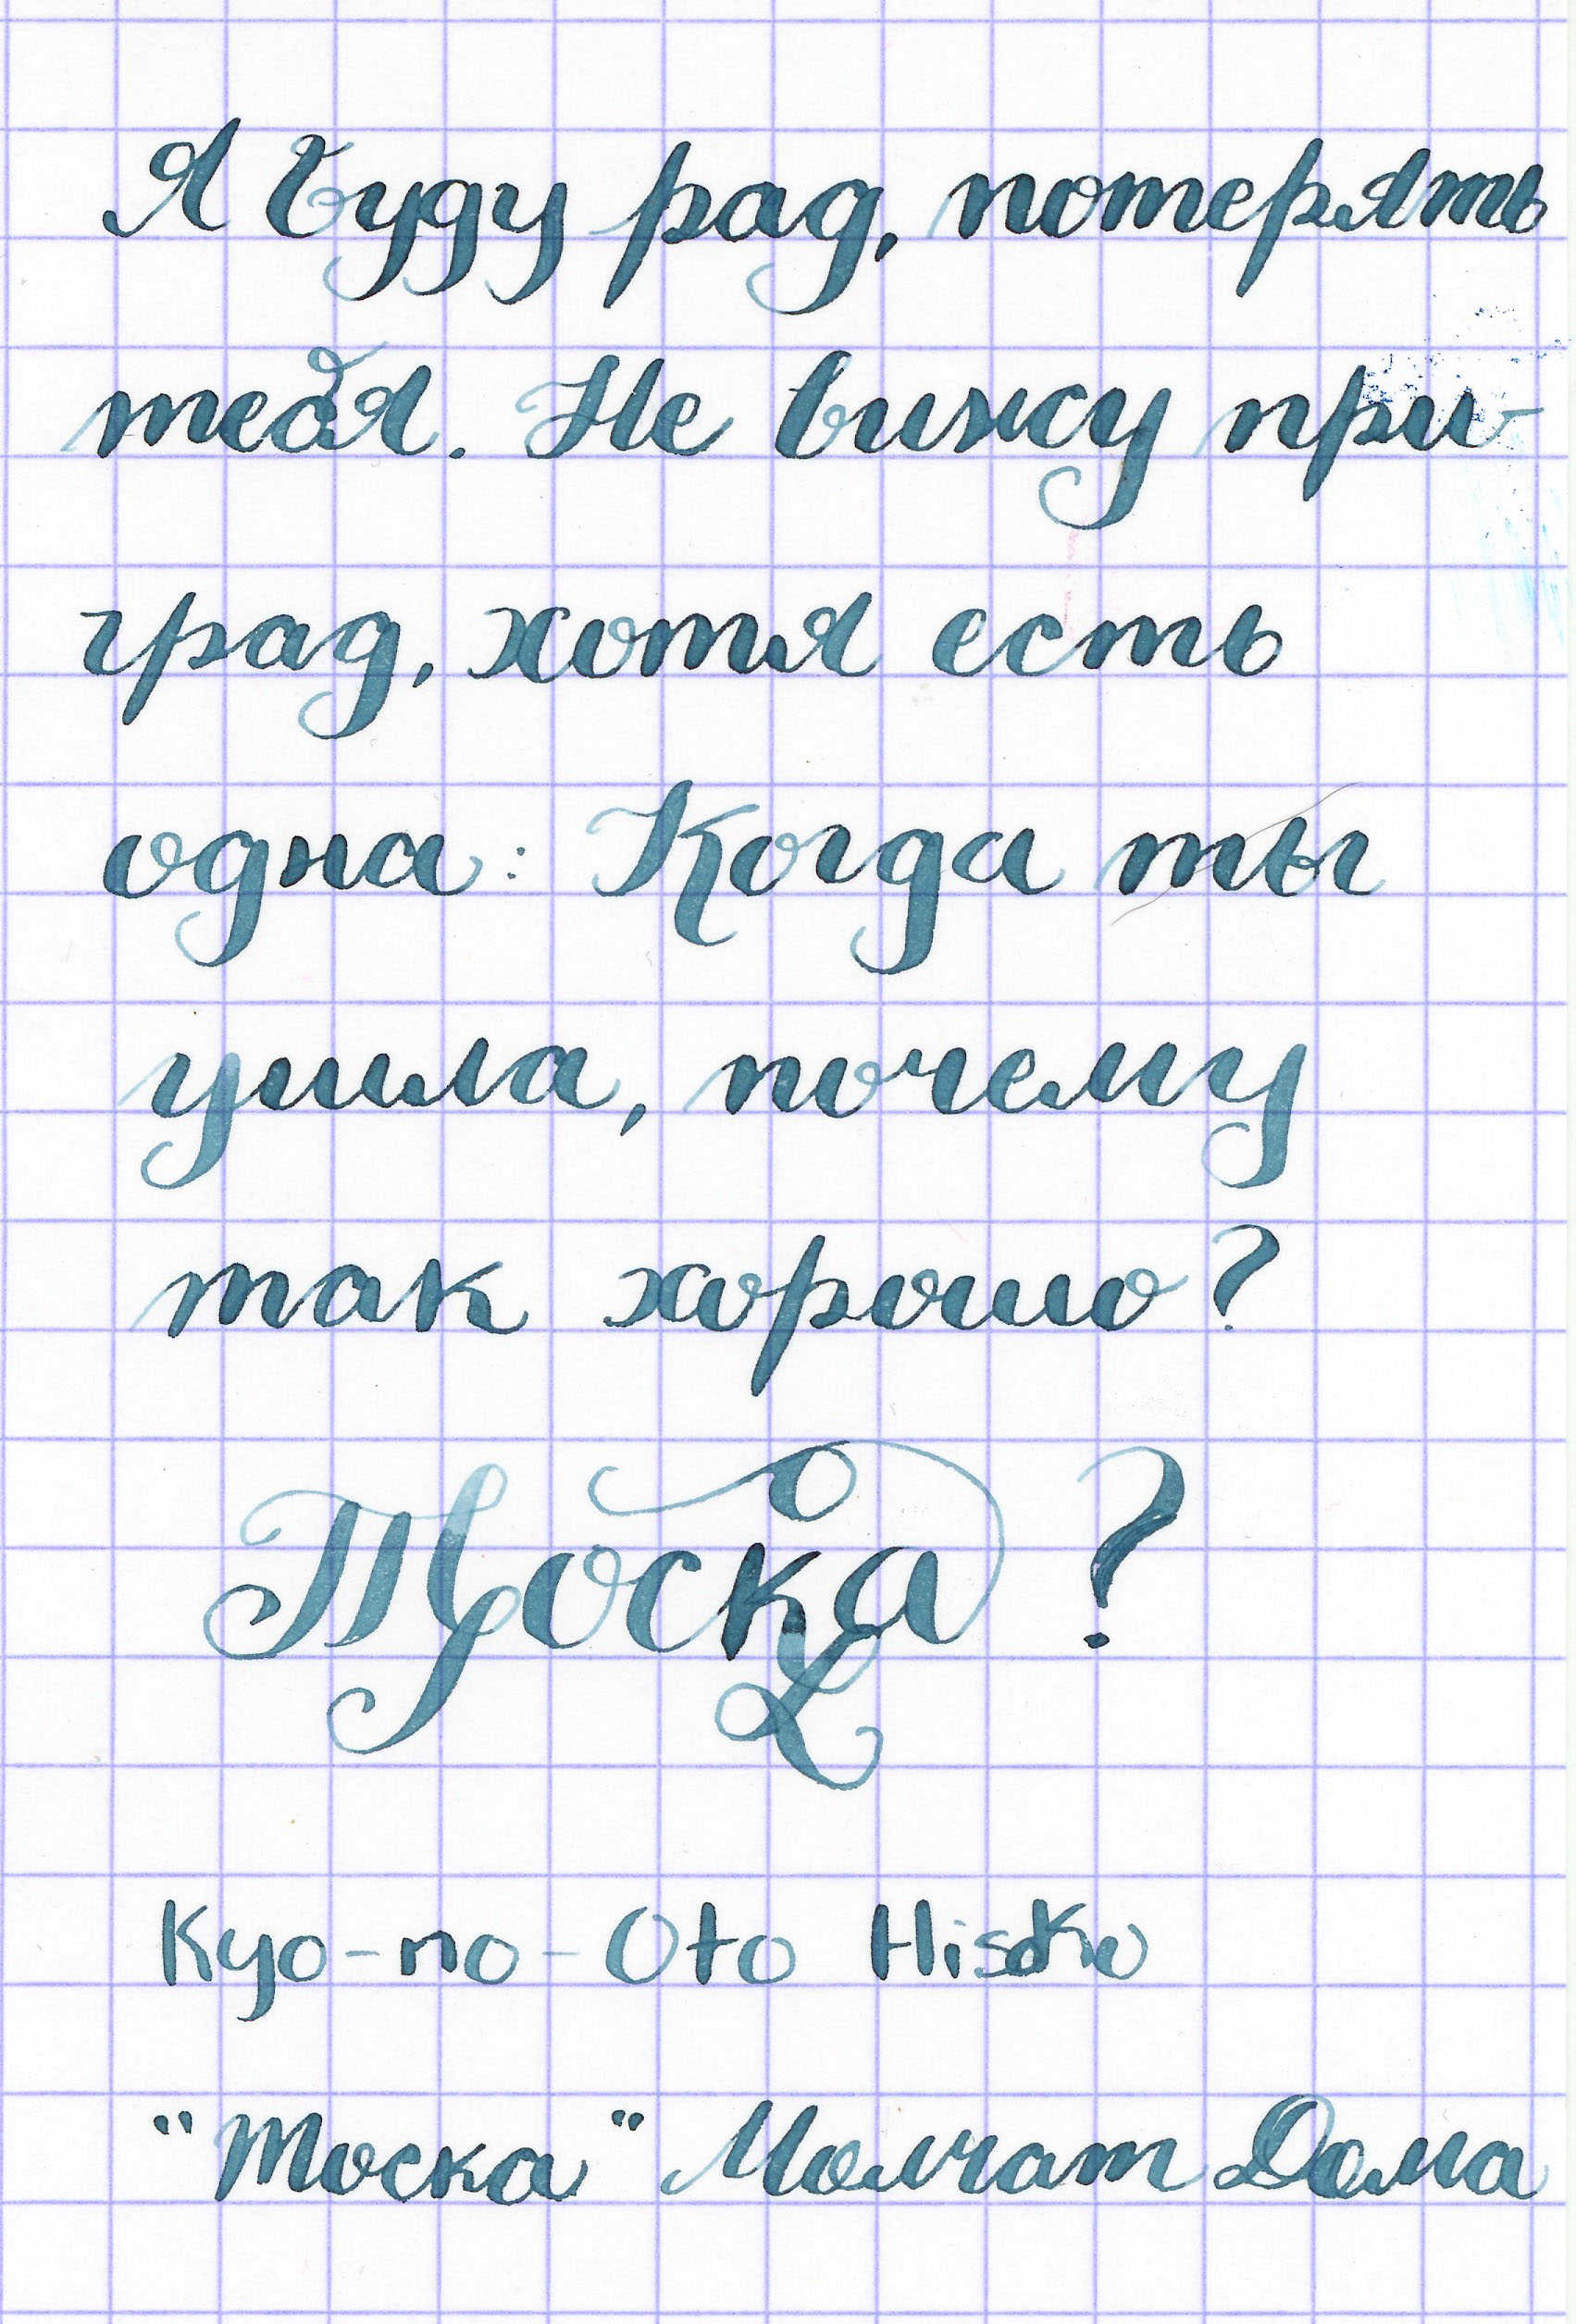 Я буду рад, потерять
тебя. Не вижу при-
град, хотя есть
одна: Когда ты
ушла, почему
так хорошо?
Тоска?
Kyo-no-Oto Hisoku
"Тоска" Молчат Дома